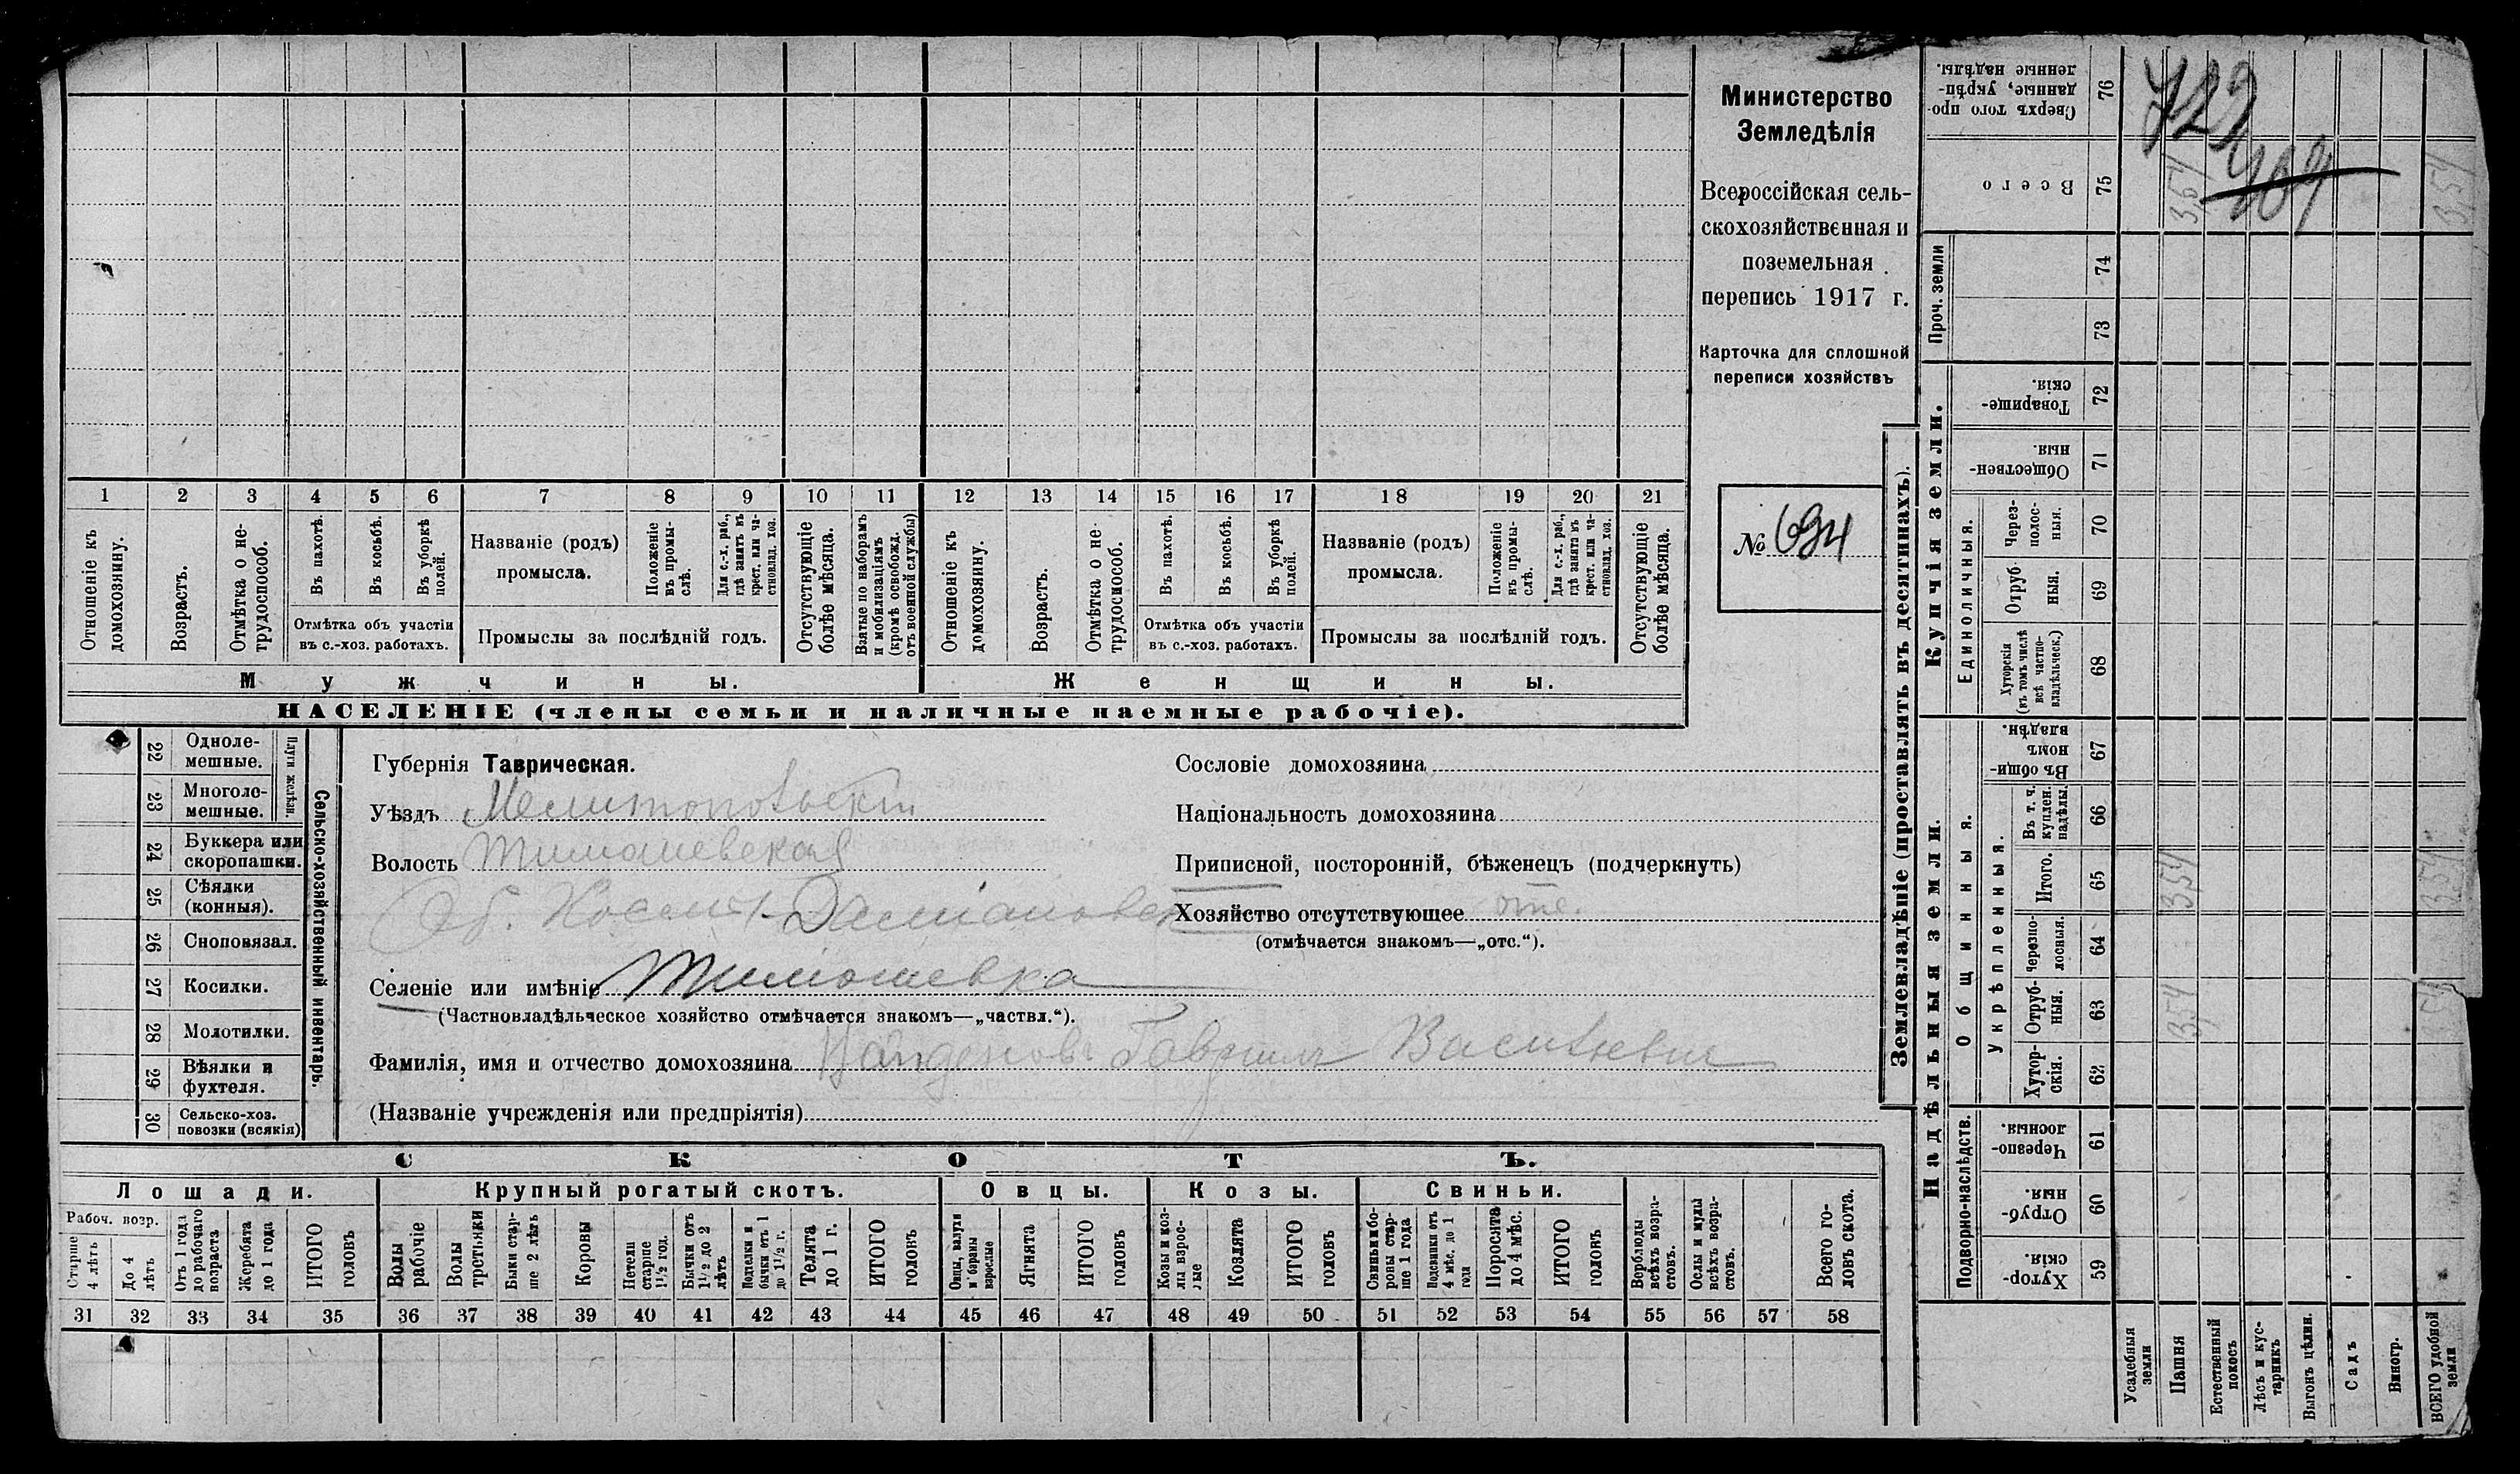 Министерство
Земледѣлія
Всероссійская сель-
скохозяйственная и
поземельная
перепись 1917 г.
Карточка для сплошной
переписи хозяйствъ
№ 694
1 2 3 4 5 6 7 8 9 10 11 12 13 14 15 16 17 18 19 20 21
Отношеніе къ домохозяину.
Возрастъ.
Отмѣтка о не-трудоспособ.
Въ пахотѣ.
Въ косьбѣ.
Въ уборкѣ полей.
Отмѣтка объ участіи
въ с.-хоз. работахъ.
Названіе (родъ)
промысла.
Положеніе въ промы-слѣ.
Для с.-х. раб., гдѣ занятъ въ крест. или ча-стновлад. хоз.
Промыслы за послѣдній годъ.
Отсутствующіе болѣе мѣсяца.
Взятые по наборамъ и мобилизаціямъ (кромѣ освобожд. отъ военной службы)
Отношеніе къ домохозяину.
Возрастъ.
Отмѣтка о не-трудоспособ.
Въ пахотѣ.
Въ косьбѣ.
Въ уборкѣ полей.
Отмѣтка объ участіи
въ с.-хоз. работахъ.
Названіе (родъ)
промысла.
Положеніе въ промы-слѣ.
Для с.-х. раб., гдѣ занята въ крест. или ча-стновлад. хоз.
Промыслы за послѣдній годъ.
Отсутствующіе болѣе мѣсяца.
Мужчины.
Женщины.
НАСЕЛЕНІЕ (члены семьи и наличные наемные рабочіе).
Сельско-хозяйственный инвентарь.
Плуги желѣзн.
22 Одноле-мешные.
23 Многоле-мешные.
24 Буккера или скоропашки.
25 Сѣялки (конныя).
26 Сноповязал.
27 Косилки.
28 Молотилки.
29 Вѣялки и фухтеля.
30 Сельско-хоз. повозки (всякія)
Губернія Таврическая.
Уѣздъ Мелитопольскій
Волость Тимошевская
Об.
Селеніе или имѣніе Тимошевка
(Частновладѣльческое хозяйство отмѣчается знакомъ—„частвл.“).
Фамилія, имя и отчество домохозяина Гавріилъ Васильевич
(Названіе учрежденія или предпріятія)
Сословіе домохозяина
Національность домохозяина
Приписной, посторонній, бѣженецъ (подчеркнуть)
Хозяйство отсутствующее отс.
(отмѣчается знакомъ—„отс.“).
СКОТЪ.
Лошади.
Крупный рогатый скотъ.
Овцы.
Козы.
Свиньи.
Рабоч. возр.
Старше 4 лѣтъ
До 4 лѣтъ
Отъ 1 года до рабочаго возраста
Жеребята до 1 года
ИТОГО головъ
Волы рабочіе
Волы третьяки
Быки стар-ше 2 лѣтъ
Коровы
Нетели старше 1 1/2 год.
Бычки отъ 1 1/2 до 2 лѣтъ
Подтелки и бычки отъ 1 до 1 1/2 г.
Телята до 1 г.
ИТОГО головъ
Овцы, валухи и бараны взрослые
Ягнята
ИТОГО головъ
Козы и коз-лы взрос-лые
Козлята
ИТОГО головъ
Свиньи и бо-ровы стар-ше 1 года
Подсвинки отъ 4 мѣс. до 1 года
Поросята до 4 мѣс.
ИТОГО головъ
Верблюды всѣхъ возра-стовъ.
Ослы и мулы всѣхъ возра-стовъ.
Всего го-ловъ скота.
31 32 33 34 35 36 37 38 39 40 41 42 43 44 45 46 47 48 49 50 51 52 53 54 55 56 57 58
Землевладѣніе (проставлять въ десятинахъ).
Сверхъ того про-данные, укрѣп-ленные надѣлы. 76
Всего 75 354 354
Проч. земли
74
73
Купчія земли.
Товарище-скія. 72
Обществен-ныя. 71
Единоличныя.
Через-полос-ныя. 70
Отруб-ныя. 69
Хуторскія (въ томъ числѣ всѣ частно-владѣльческ.) 68
Надѣльныя земли.
Общинныя.
Въ общи-номъ владѣн. 67
Укрѣпленныя.
Въ т. ч. куплен. надѣлы. 66
Итого. 65 354 354
Черезпо-лосныя. 64
Отруб-ныя. 63 354 354
Хутор-скія. 62
Подворно-наслѣдств.
Черезпо-лосныя. 61
Отруб-ныя. 60
Хутор-скія. 59
Усадебныя земли
Пашня
Естественный покосъ
Лѣсъ и кус-тарникъ
Выгонъ цѣлин.
Садъ
Виногр.
ВСЕГО удобной земли